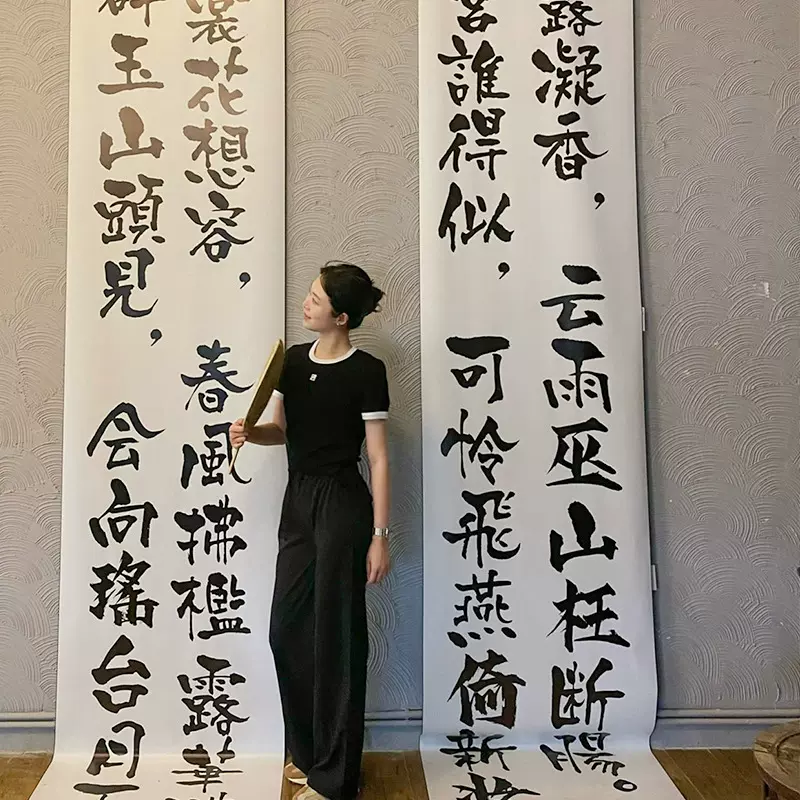 裳花想容，春風拂檻露華
玉山頭見，会向瑤台月下
露凝香，云雨巫山枉断腸。
宮誰得似，可怜飛燕倚新